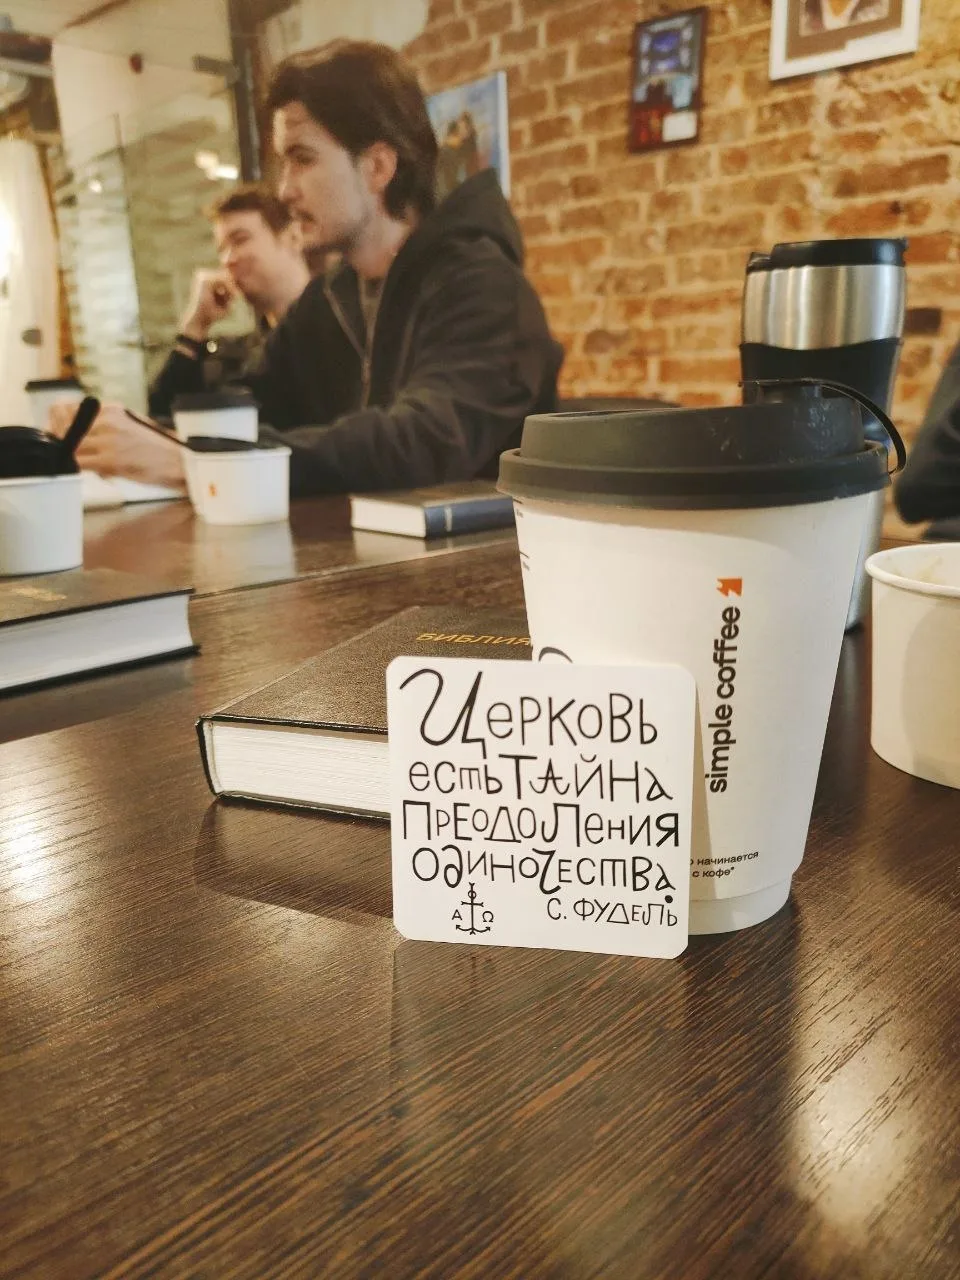 БИБЛИЯ
Церковь
есть ТАЙНА
ПРЕОДОЛЕНИЯ
ОДИНОЧЕСТВА
С. ФУДЕЛЬ
Α Ω
simple coffee
начинается
с кофе"